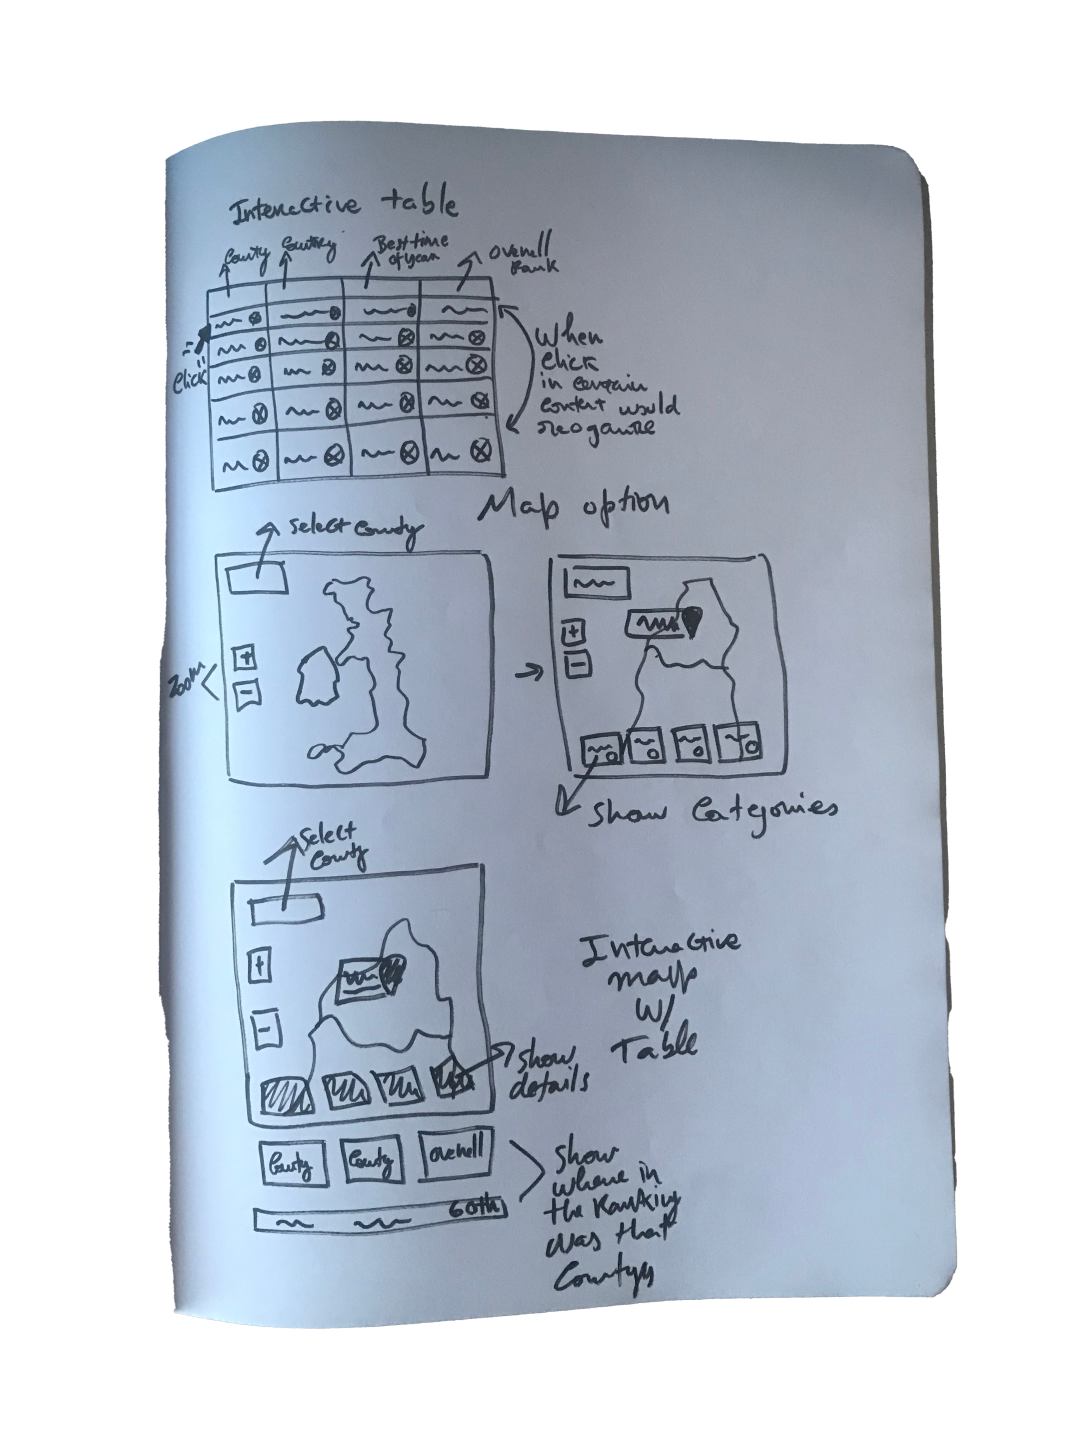 Interactive table
County
Country
Best time
of year
Overall
Rank
Click
When
click
in certain
content would
reogance
Map option
Select County
Zoom
+
-
+
-
Show Categories
Select
County
+
-
Interactive
map
W/
Table
Show
details
County
County
Overall
60th
Show
where in
the Ranking
was that